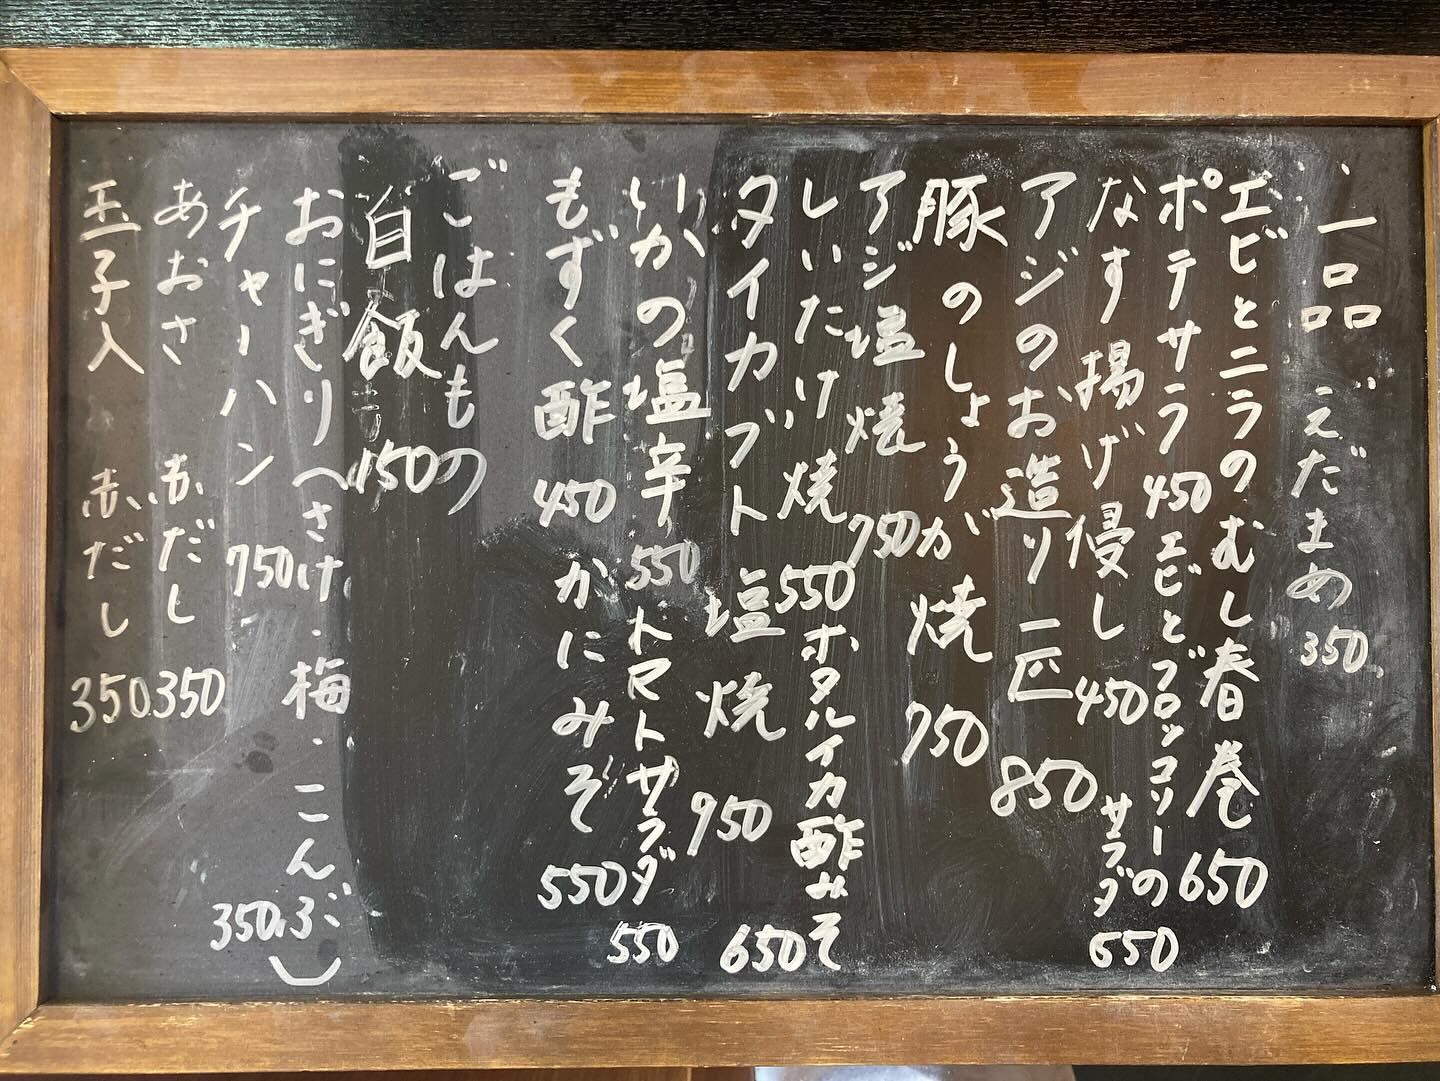 一品 えだまめ 350
エビとニラのむし春巻 650
ポテサラ 450 エビとブロッコリーのサラダ 550
なす揚げ浸し 450
アジのお造り 一匹 850
豚のしょうが焼 750
アジ塩焼 750
しいたけ焼 550 ホタルイカ酢みそ 650
タイカブト塩焼 950
いかの塩辛 550 トマトサラダ 550
もずく酢 450 かにみそ 550
ごはんもの
白飯 150
おにぎり(さけ・梅・こんぶ) 350
チャーハン 750
あおさ 赤だし 350
玉子入 赤だし 350